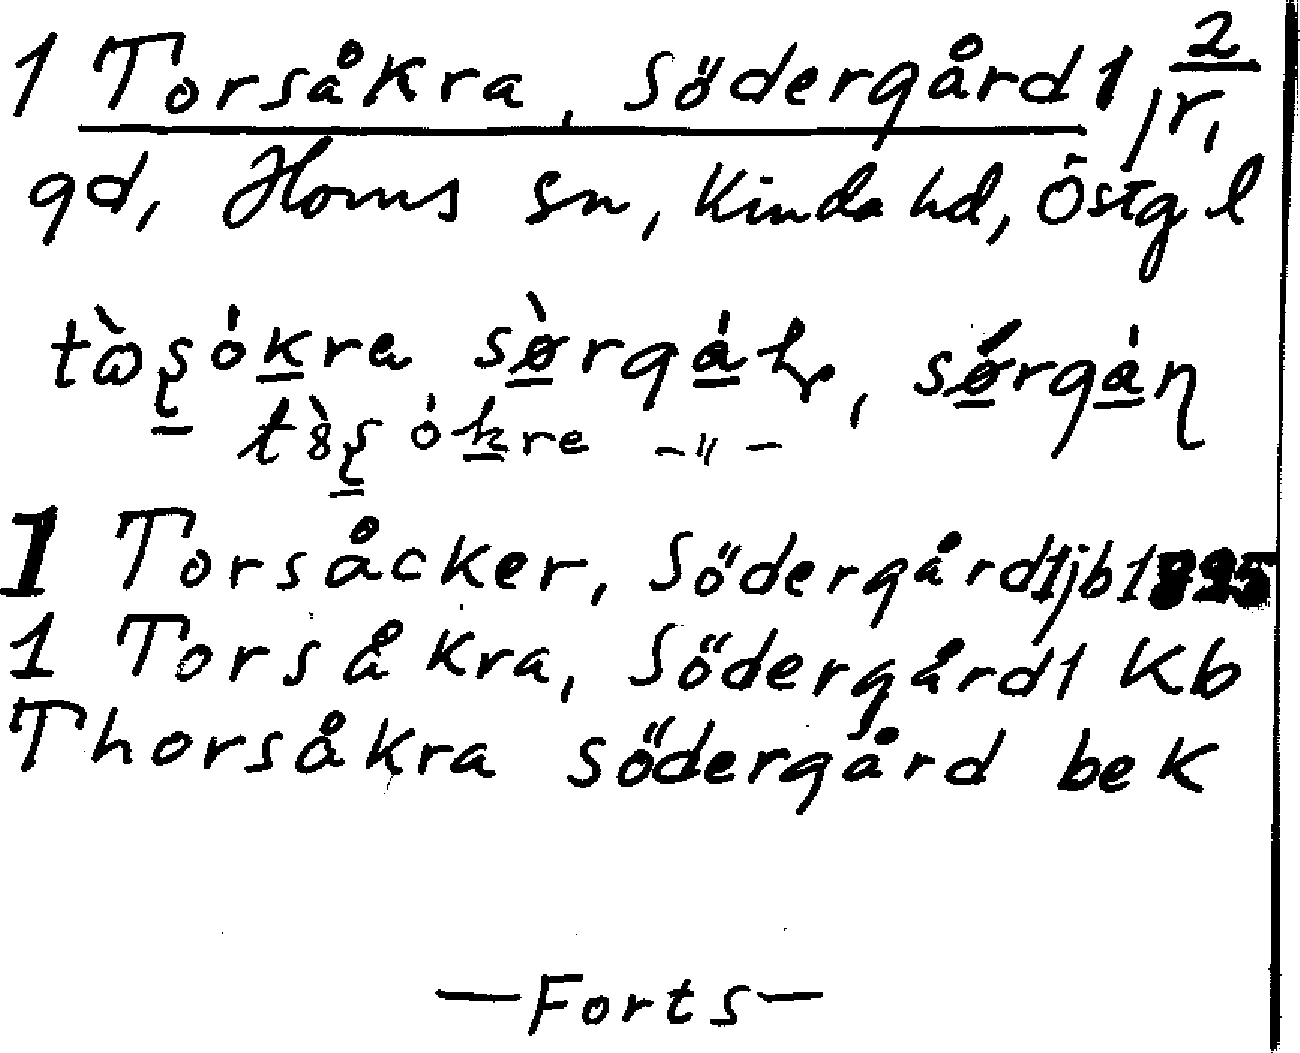 1 Torsåkra, Södergård 1, 2/r,
gd, Horns sn, Kinda hd, Östg l
1 Torsåcker, Södergård 1 jb 1825
1 Torsåkra, Södergård 1 Kb
Thorsåkra södergård bek
—Forts—